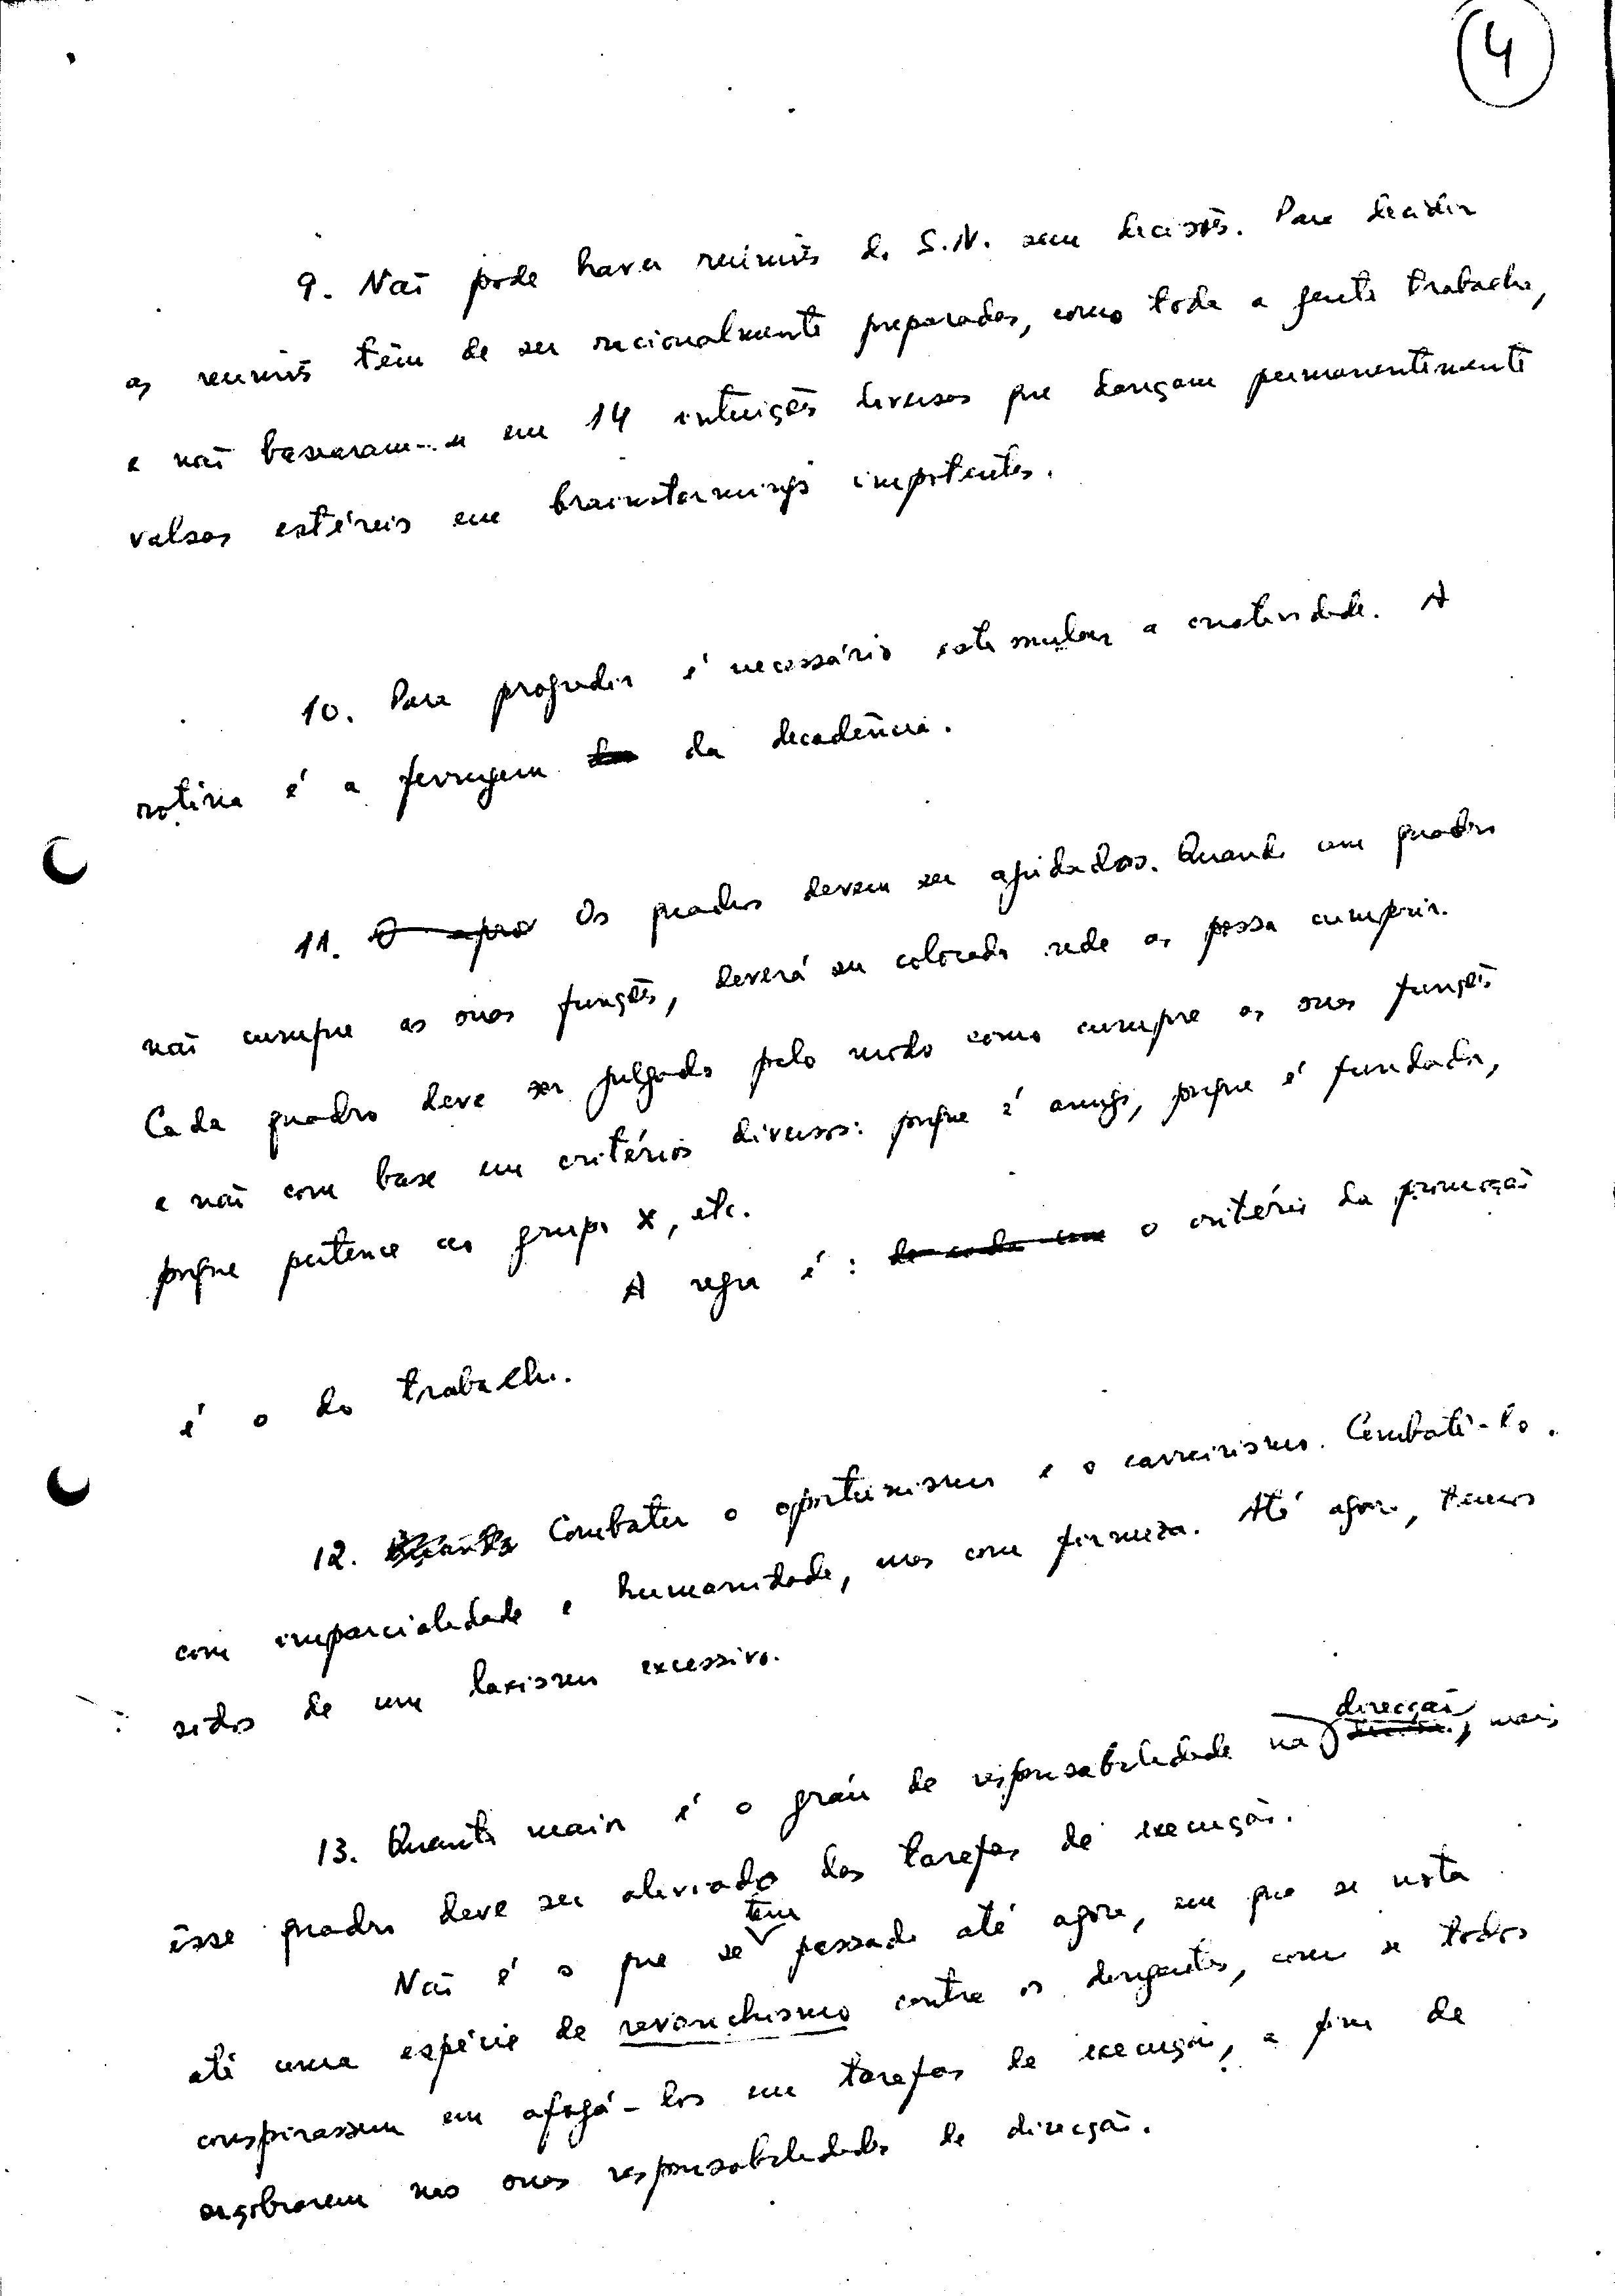 4
9. Não pode haver reuniões do S.N. sem decisões. Para decidir
as reuniões têm de ser racionalmente preparadas, como toda a gente trabalha,
e não basearam-se em 14 intuições diversas que dançam permanentemente
valsas estéreis em brainstormings impotentes.
10. Para progredir é necessário estimular a criatividade. A
rotina é a ferrugem da decadência.
11. O apro Os quadros devem ser ajudados. Quando um quadro
não cumpre as suas funções, deverá ser colocado onde as possa cumprir.
Cada quadro deve ser julgado pelo modo como cumpre as suas funções
e não com base em critérios diversos: porque é amigo, porque é fundador,
porque pertence ao grupo X, etc.
A regra é: de cada um o critério da promoção
é o do trabalho.
12. Combater o oportunismo e o carreirismo. Combatê-lo
com imparcialidade e humanidade, mas com firmeza. Até agora, temos
sido de um laxismo excessivo.
13. Quanto maior é o grau de responsabilidade na direcção, mais
êsse quadro deve ser aliviado das tarefas de execução.
Não é o que se tem passado até agora, em que se nota
até uma espécie de revanchismo contra os dirigentes, como se todos
conspirassem em afogá-los em tarefas de execução, a fim de
soçobrarem nas suas responsabilidades de direcção.